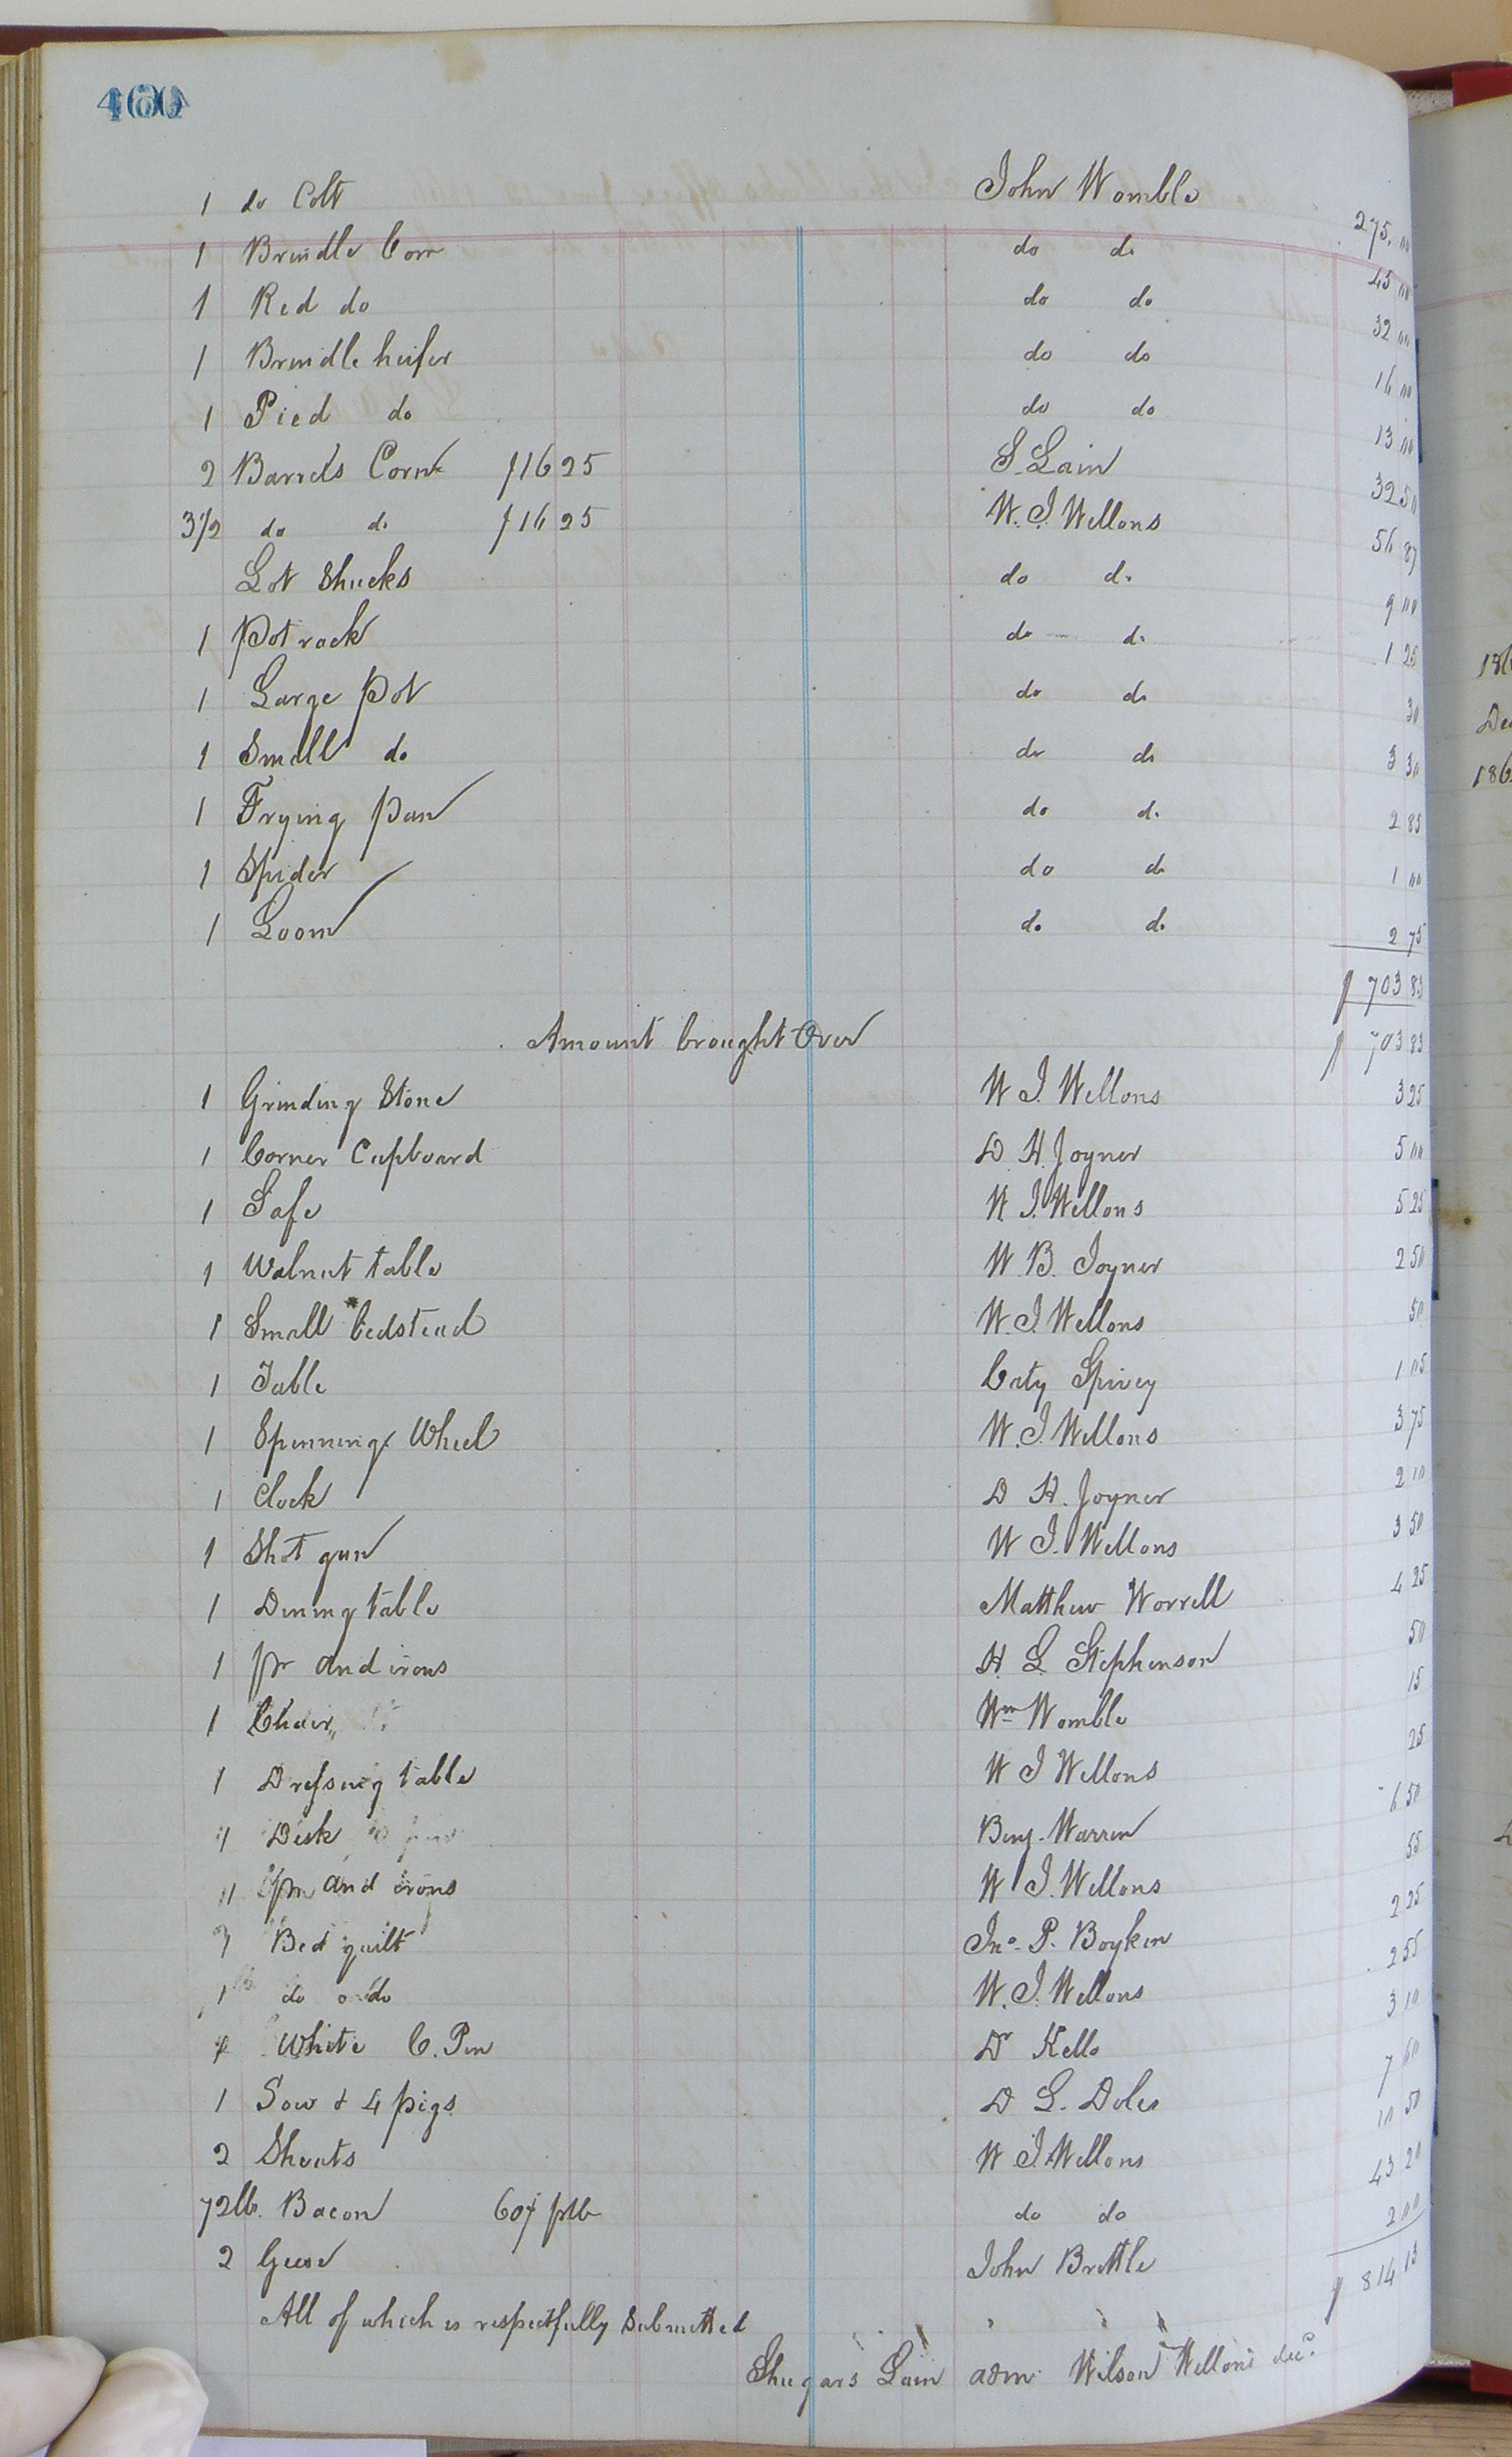 1 do Colt John Womble 275.00
1 Brindle Cow do do 45 00
1 Red do do do 32 00
1 Brindle heifer do do 16 00
1 Pied do do do 13 00
2 Barrels Corn $16 25 S. Lain 32 50
3 1/2 do do $16 25 W. J. Wellons 56 87
Lot Shucks do do 9 00
1 Pot rack do do 1 25
1 Large Pot do do 30
1 Small do do do 3 30
1 Frying Pan do do 2 85
1 Spider do do 1 00
1 Loom do do 2 75
$ 703 83
Amount brought Over $ 703 83
1 Grinding Stone W J. Wellons 3 25
1 Corner Cupboard D. H. Joyner 5 00
1 Safe W J. Wellons 5 25
1 Walnut table W. B. Joyner 2 50
1 Small bedstead W. J. Wellons 50
1 Table Caty Spivey 1 05
1 Spinning Wheel W. J. Wellons 3 75
1 Clock D H. Joyner 2 10
1 Shot gun W J. Wellons 3 50
1 Dining table Matthew Worrell 4 25
1 pr and irons H. L. Stephenson 50
1 Chair Wm Womble 15
1 Dressing table W J Wellons 25
1 Desk Benj. Warren 6 50
1 pr and irons W J. Wellons 55
1 Bed quilt Jno. P. Boykin 2 25
1 do do W. J. Wellons 2 55
1 White C. Pin Dr Kello 3 10
1 Sow & 4 pigs D L. Doles 7 60
2 Shoats W J. Wellons 10 50
72 lb. Bacon 60¢ plb do do 43 20
2 Geese John Brittle 2 00
$ 814 13
All of which is respectfully Submitted
Shugars Lain adm. Wilson Wellons decd.